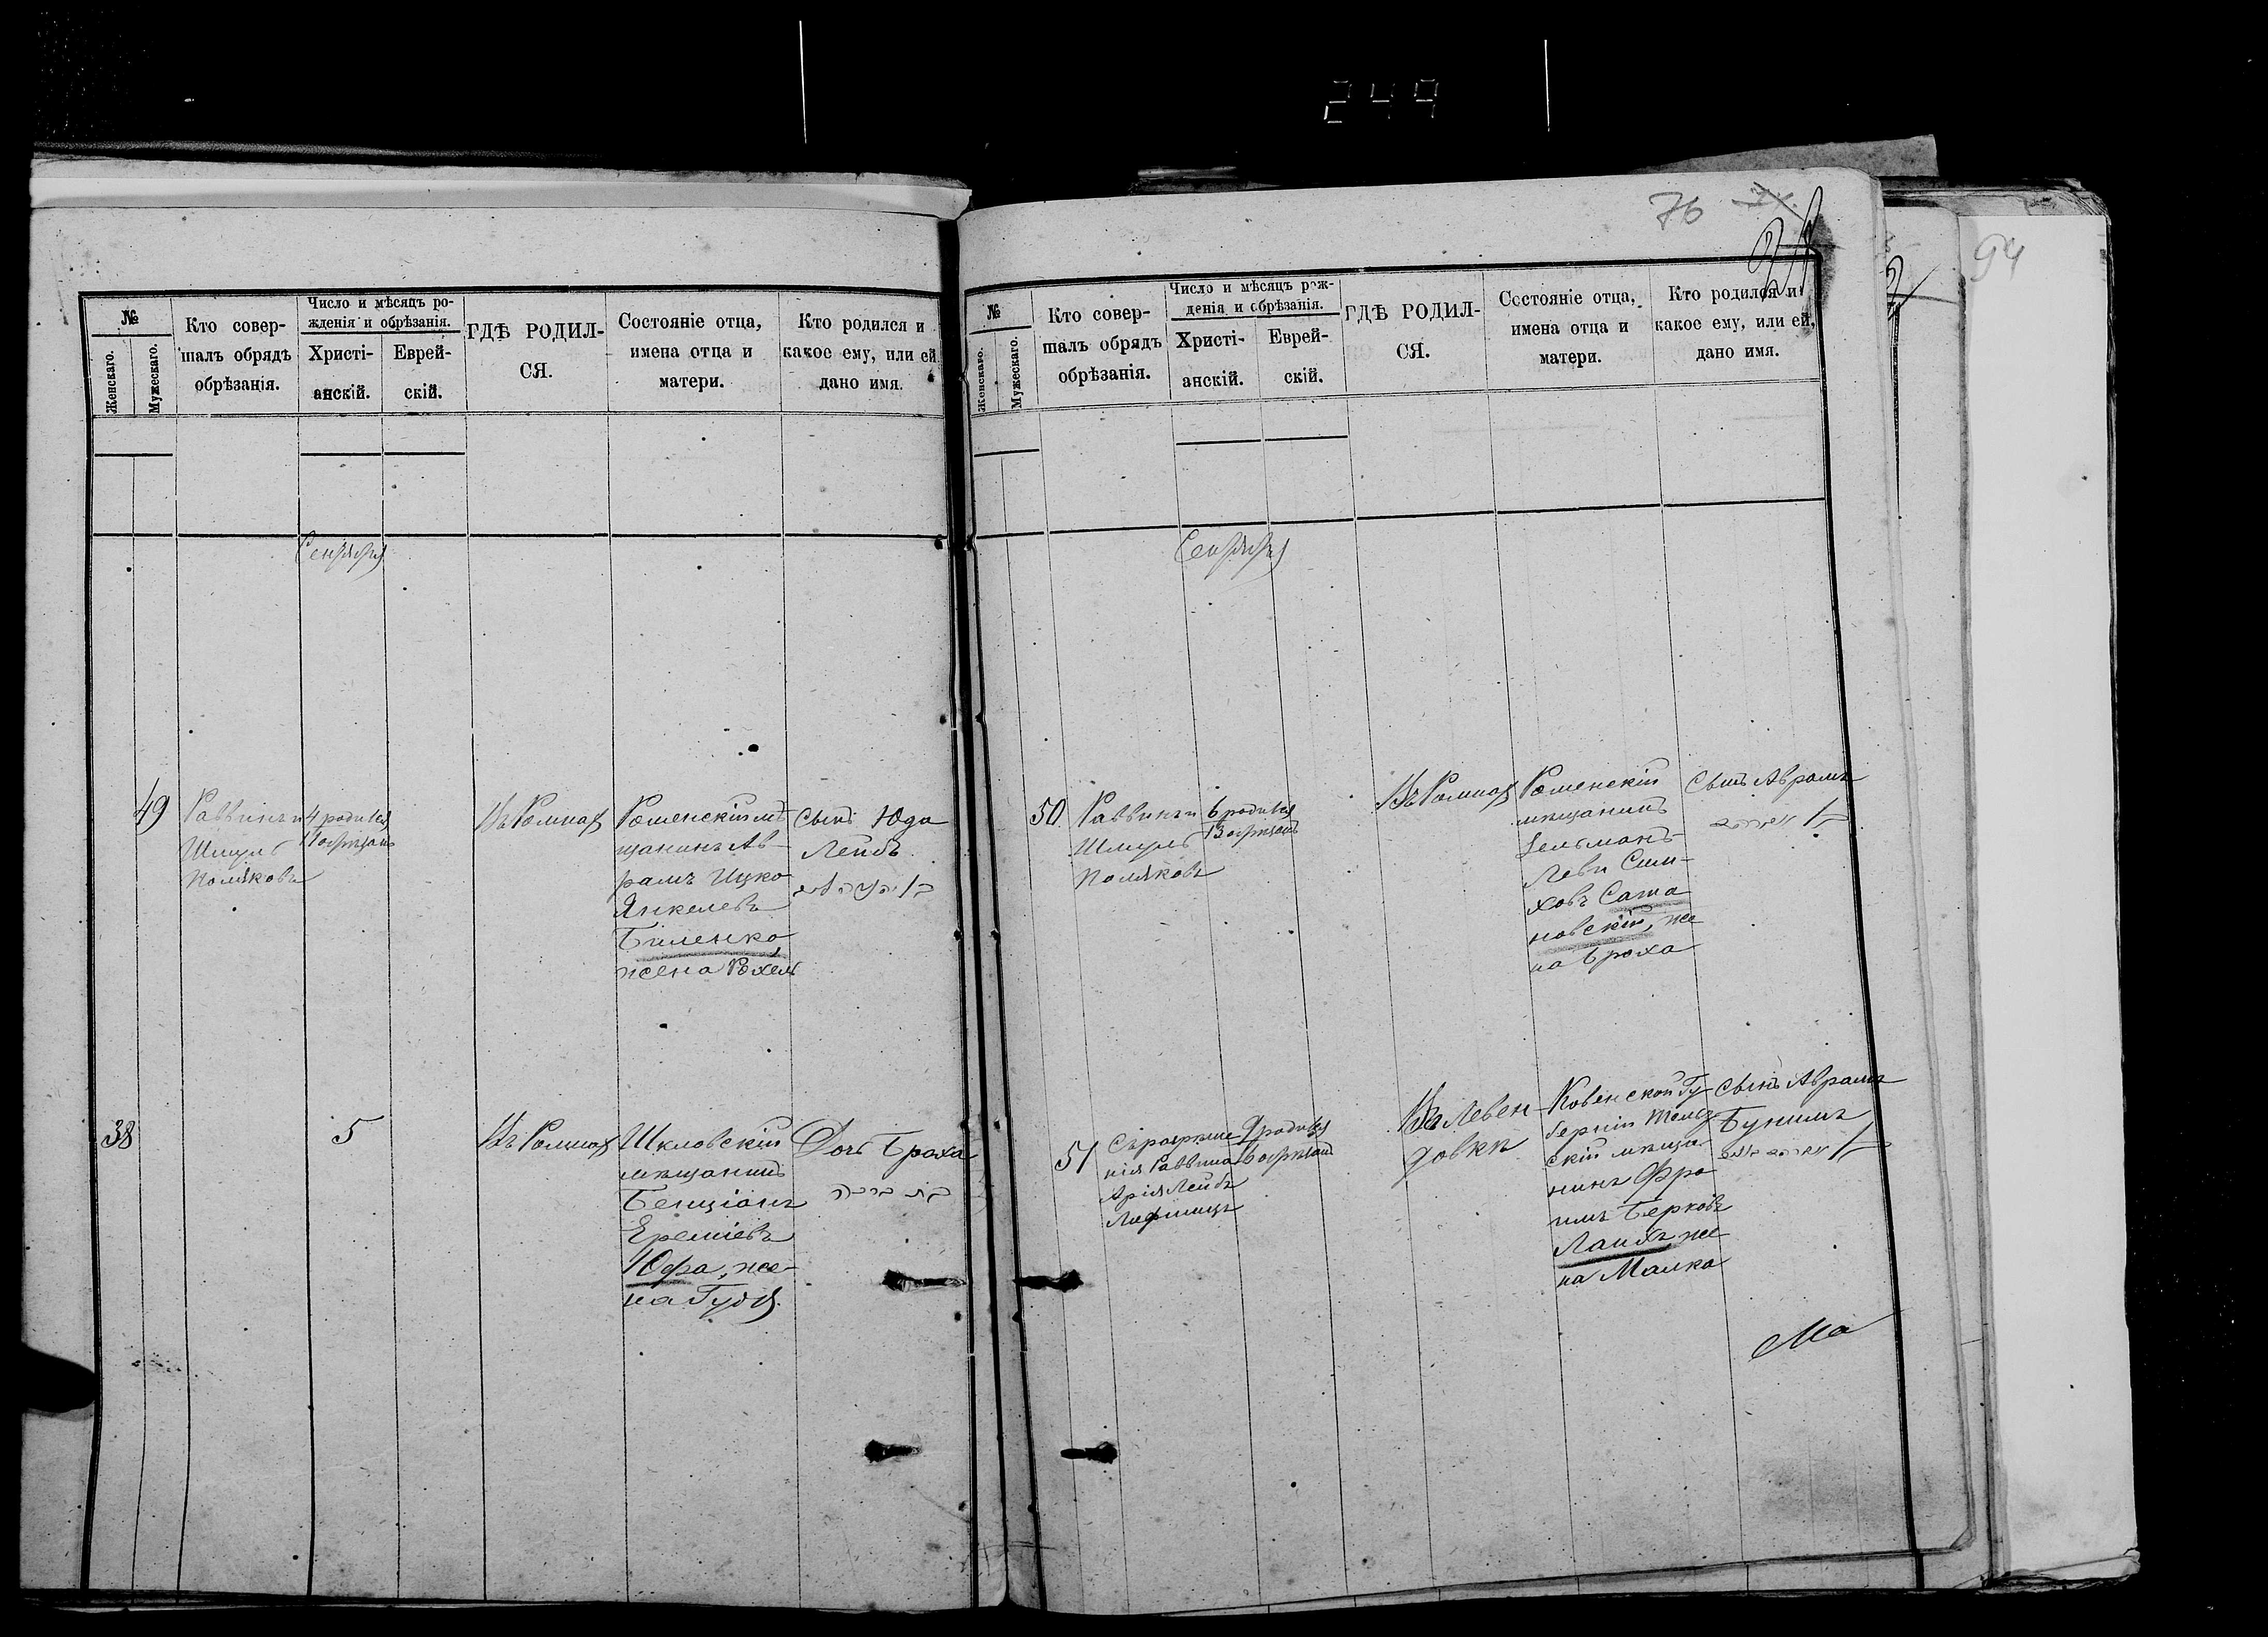 249
76
94
№
Женскаго.
Мужескаго.
Кто совер-
шалъ обрядъ
обрѣзанія.
Число и мѣсяцъ ро-
жденія и обрѣзанія.
Христі-
анскій.
Еврей-
скій.
ГДѢ РОДИЛ-
СЯ.
Состояніе отца,
имена отца и
матери.
Кто родился и
какое ему, или ей
дано имя.
Сентября
49
Раввинъ
Шмуль
Поляковъ
4 родился
11 обрѣзанъ
Въ Ромнах
Роменскій мѣ-
щанинъ Ав-
рамъ Ицко
Янкелевъ
Биленко,
жена Рохель
Сынъ Юда
Лейбъ
38
5
Въ Ромнах
Шкловскій
мѣщанинъ
Бенціонъ
Еремѣевъ
Юфа, же-
на Гудя.
Дочь Броха
בת ברכה
№
Женскаго.
Мужескаго.
Кто совер-
шалъ обрядъ
обрѣзанія.
Число и мѣсяцъ рож-
денія и обрѣзанія.
Христі-
анскій.
Еврей-
скій.
ГДѢ РОДИЛ-
СЯ.
Состояніе отца,
имена отца и
матери.
Кто родился и
какое ему, или ей,
дано имя.
Сентября
50
Раввинъ
Шмуль
Поляковъ
6 родился
13 обрѣзанъ
Въ Ромнах
Роменскій
мѣщанинъ
Зельманъ-
Леви Сим-
ховъ Сата
новскій, же
на Броха
Сынъ Аврамъ
51
Съ разрѣше
нія Раввина
Арія Лейбъ
Лифшицъ
9 родился
16 обрѣзанъ
Въ Левен-
довкѣ
Ковенской Гу-
берніи Тельш
скій мѣща-
нинъ Фро
имъ Берковъ
Ландъ, же
на Малка
Сынъ Аврамъ
Бунимъ